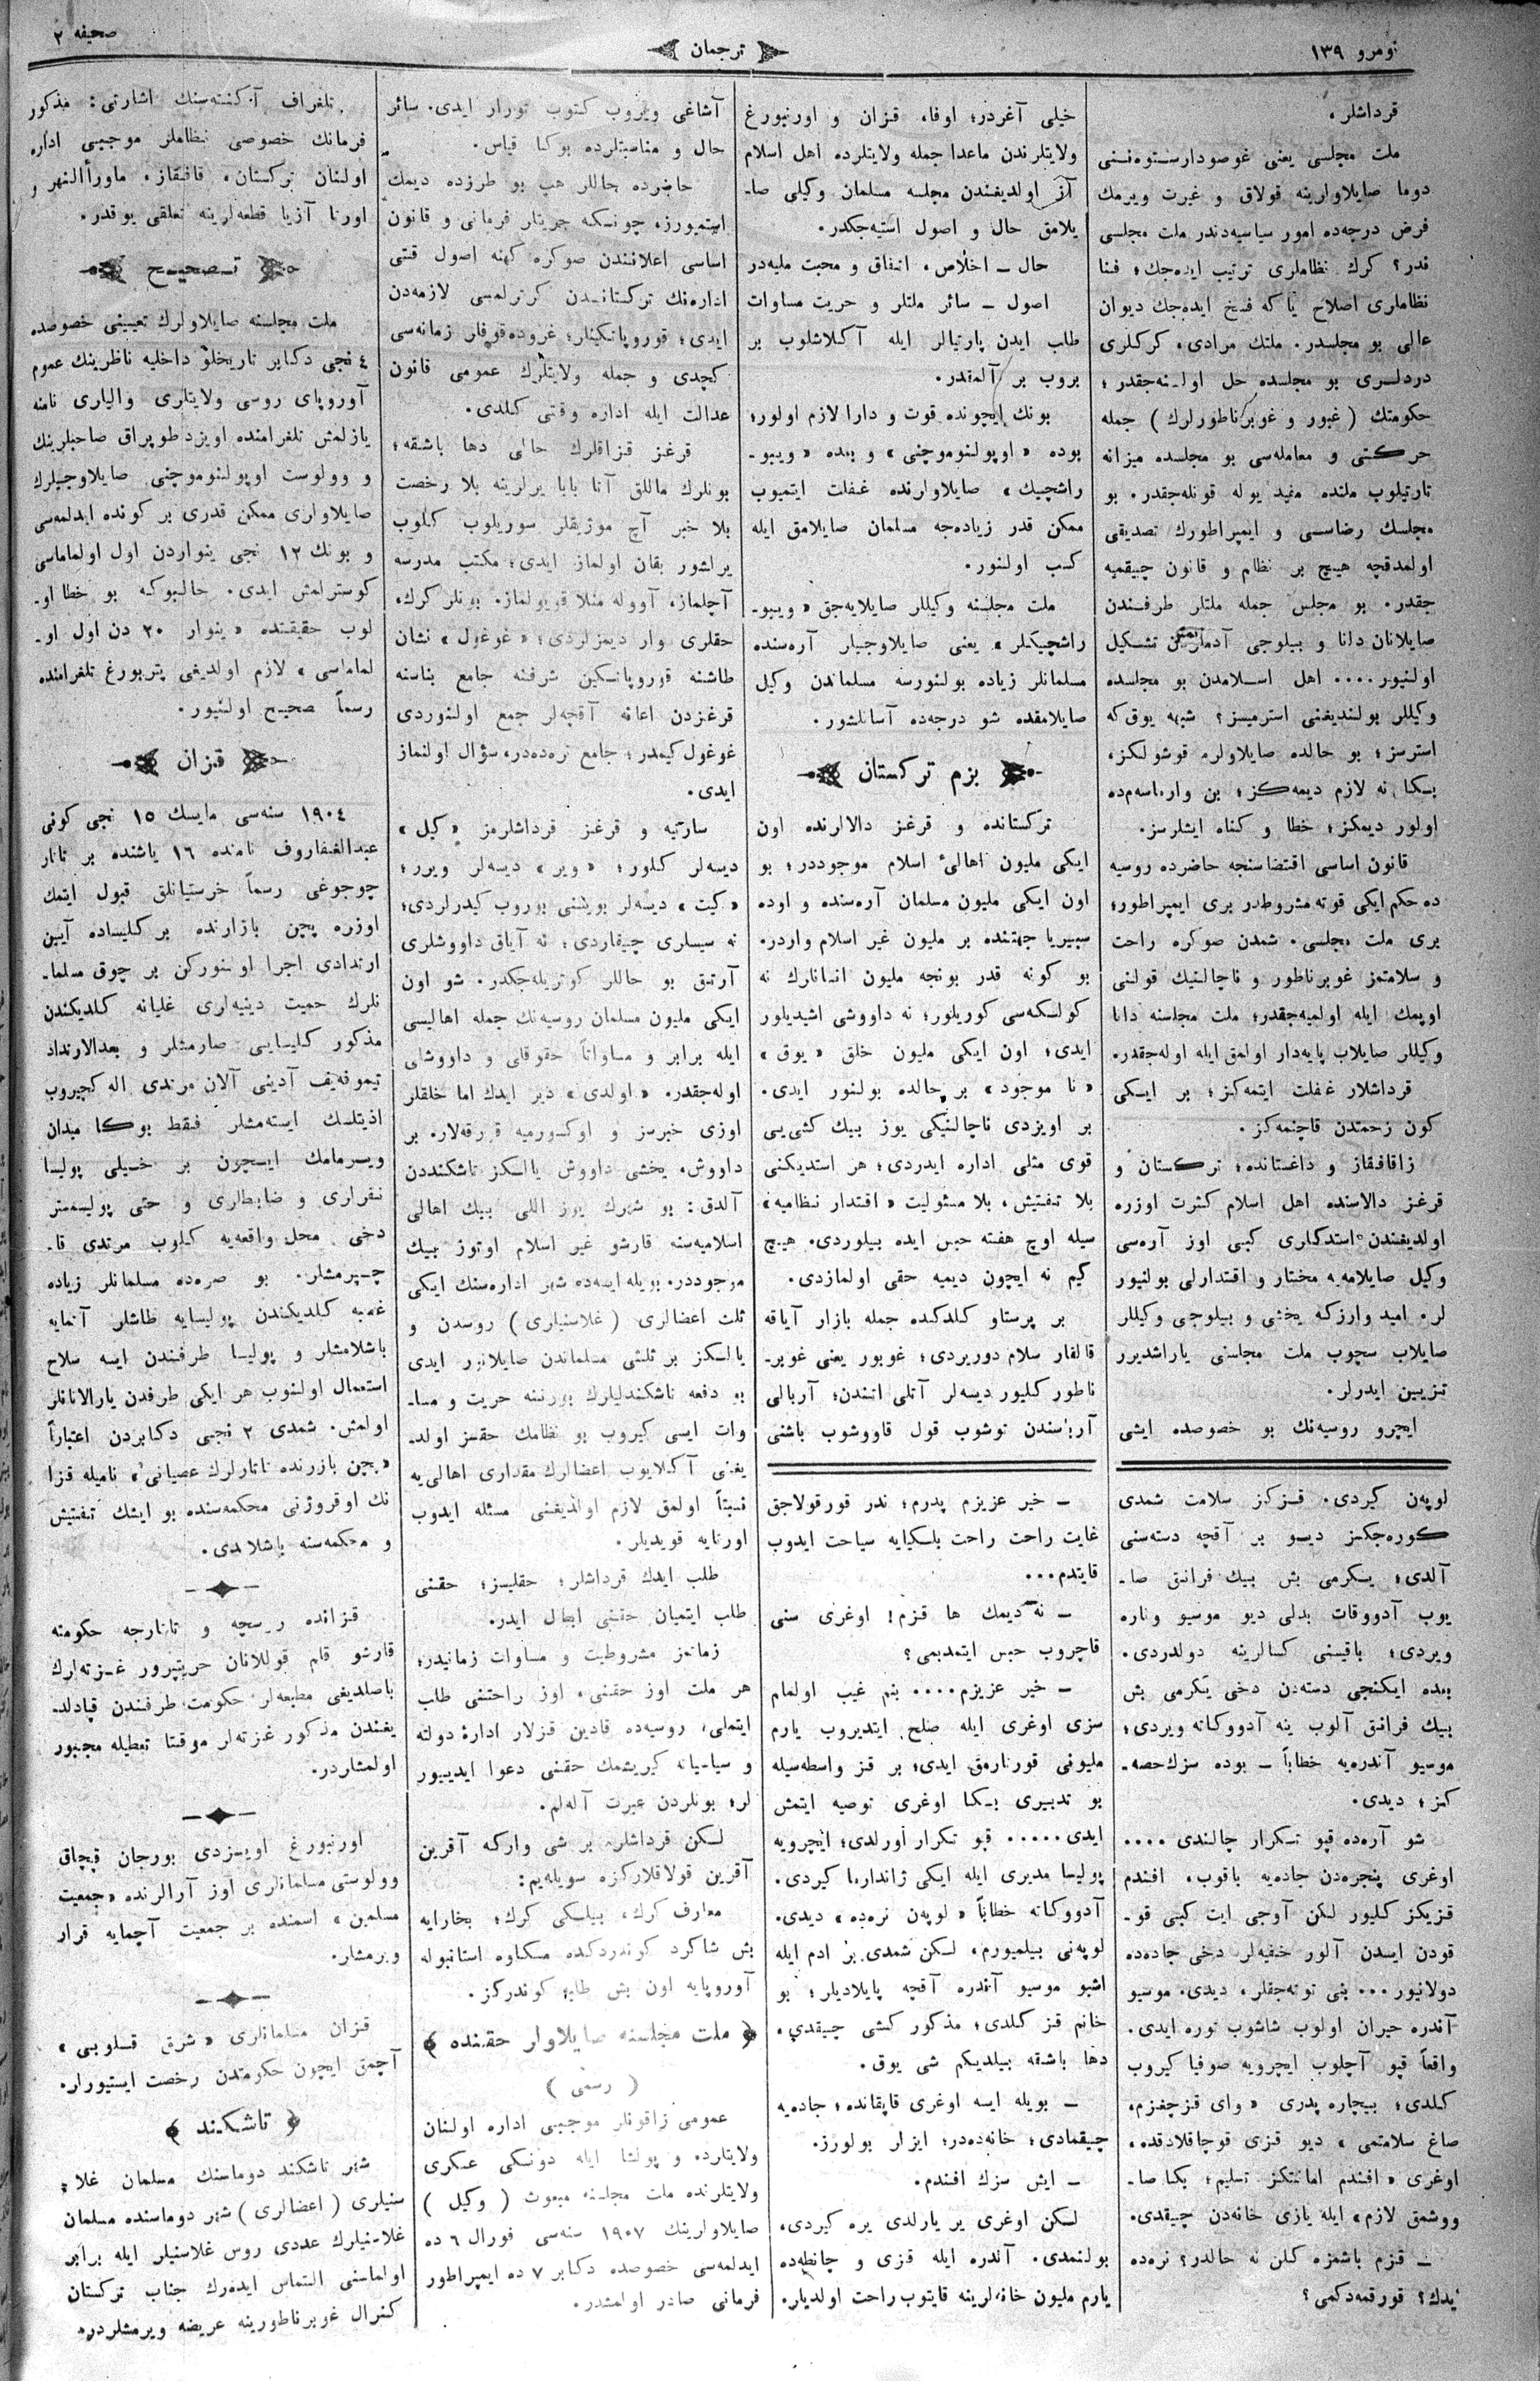 نومرو ۱۳۹
ترجمان
صحیفه ۲
قرداشلر،
ملت مجلسی یعنی غوصودارستوه‌ننی
دوما صایلاوارینه قولاق و غیرت ویرمك
فرض درجه‌ده امور سیاسیه‌دندر ملت مجلسی
ندر؟ كرك نظاملری ترتیب ایده‌جك؛ فنا
نظاملری اصلاح یا كه فسخ ایده‌جك دیوان
عالی بو مجلسدر. ملتك مرادی، كركلری
دردلری بو مجلسده حل اولنه‌جقدر؛
حكومتك (غبور و غوبرناطورلرك) جمله
حركتی و معامله‌سی بو مجلسده میزانه
تارتیلوب ملتده مفید یوله قونله‌جقدر. بو
مجلسك رضاسی و ایمپراطورك تصدیقی
اولمدقچه هیچ بر نظام و قانون چیقمیه
جقدر. بو مجلس جمله ملتلر طرفندن
صایلانان دانا و بیلوجی آدملردن تشكیل
اولنیور.... اهل اسلامدن بو مجلسده
وكیللر بولندیغنی استرمیسز؟ شبهه یوق كه
استرسز؛ بو حالده صایلاولره قوشولكز،
بكا نه لازم دیمه‌كز؛ بن وارماسه‌م‌ده
اولور دیمكز؛ خطا و كناه ایشلرسز.
قانون اساسی اقتضاسنجه حاضرده روسیه
ده حكم ایكی قوته مشروطدر بری ایمپراطور؛
بری ملت مجلسی. شمدن صوكره راحت
و سلامتمز غوبرناطور و ناچالنیك قولنی
اوپمك ایله اولمیه‌جقدر؛ ملت مجلسنه دانا
وكیللر صایلاب پایه‌دار اولمق ایله اوله‌جقدر.
قرداشلار غفلت ایتمه‌كز؛ بر ایكی
كون زحمتدن قاچنمه‌كز.
زاقافقاز و داغستانده؛ تركستان و
قرغز دالاسنده اهل اسلام كثرت اوزره
اولدیغندن استدكلری كبی اوز آره‌سی
وكیل صایلامه‌یه مختار و اقتدارلی بولنیور
لر. امید وارزكه یخشی و بیلوجی وكیللر
صایلاب سچوب ملت مجلسنی یاراشدیرر
تزیین ایدرلر.
ایچرو روسیه‌نك بو خصوصده ایشی
خیلی آغردر؛ اوفا، قزان و اورنبورغ
ولایتلرندن ماعدا جمله ولایتلرده اهل اسلام
آز اولدیغندن مجلسه مسلمان وكیلی صا-
یلامق حال و اصول استیه‌جكدر.
حال — اخلاص، اتفاق و محبت ملیه‌در
اصول — سائر ملتلر و حریت مساوات
طلب ایدن پارتیالر ایله آكلاشلوب بر
بروب بر آلمقدر.
بونك ایچونده قوت و دارا لازم اولور؛
بوده «اوپولنوموچنی» و بعده «ویبو-
راشچیك» صایلاولرنده غفلت ایتمیوب
ممكن قدر زیاده‌جه مسلمان صایلامق ایله
كسب اولنور.
ملت مجلسنه وكیللر صایلایه‌جق «ویبو-
راشچیكلر» یعنی صایلاوجیلر آره‌سنده
مسلمانلر زیاده بولنورسه مسلماندن وكیل
صایلامقده شو درجه‌ده آسانلشور.
بزم تركستان
تركستانده و قرغز دالالرنده اون
ایكی ملیون اهالئ اسلام موجوددر؛ بو
اون ایكی ملیون مسلمان آره‌سنده و اوده
سیبریا جهتنده بر ملیون غیر اسلام واردر.
بو كونه قدر بونجه ملیون انسانلرك نه
كولسكه‌سی كوریلور؛ نه داووشی اشیدیلور
ایدی؛ اون ایكی ملیون خلق «یوق»
«نا موجود» بر حالده بولنور ایدی.
بر اویزدی ناچالنیكی یوز بیك كشی‌یی
قوی مثلی اداره ایدردی؛ هر استدیكنی
بلا تفتیش، بلا مسئولیت «اقتدار نظامیه»
سیله اوچ هفته حبس ایده بیلوردی. هیچ
كیم نه ایچون دیمیه حقی اولمازدی.
بر پرستاو كلدكده جمله بازار آیاقه
قالقار سلام دوریردی؛ غوبور یعنی غوبر-
ناطور كلیور دیسه‌لر آتلی اتندن؛ آربالی
آرباسندن توشوب قول قاووشوب باشنی
آشاغی ویروب كتوب تورار ایدی. سائر
حال و مناسبتلرده بوكا قیاس.
حاضرده حاللر هب بو طرزده دیمك
استمیورز، چونكه حریتلر فرمانی و قانون
اساسی اعلانندن صوكره كهنه اصول قتی
اداره‌نك تركستاندن كوترلمسی لازمه‌دن
ایدی؛ قوروپاتكینلر؛ غروده‌قوفلر زمانه‌سی
كچدی و جمله ولایتلرك عمومی قانون
عدالت ایله اداره وقتی كلدی.
قرغز قزاقلرك حالی دها باشقه؛
بونلرك ماللق آتا بابا یرلرینه بلا رخصت
بلا خبر آچ موژیقلر سوریلوب كلوب
یراشور بقان اولماز ایدی؛ مكتب مدرسه
آچلماز، آووله منلا قویولماز. بونلر كرك،
حقلری وار دیمزلردی؛ «غوغول» نشان
طاشنه قوروپاتكین شرفنه جامع بناسنه
قرغزدن اعانه آقچه‌لر جمع اولنوردی
غوغول كیمدر؛ جامع نره‌ده‌در، سؤال اولنماز
ایدی.
سارتیه و قرغز قرداشلرمز «كیل»
دیسه‌لر كلور؛ «ویر» دیسه‌لر ویرر؛
«كیت» دیسه‌لر بویننی بوروب كیدرلردی؛
نه سیسلری چیقاردی؛ نه آیاق داووشلری
آرتیق بو حاللر كوتریله‌جكدر. شو اون
ایكی ملیون مسلمان روسیه‌نك جمله اهالیسی
ایله برابر و مساواتاً حقوقلی و داووشلی
اوله‌جقدر. «اولدی» دیر ایدك اما خلقلر
اوزی خبرسز و اوكسورمیه قورقه‌لار. بر
داووش، یخشی داووش یالكز تاشكنددن
آلدق: بو شهرك یوز اللی بیك اهالی
اسلامیه‌سنه قارشو غیر اسلام اوتوز بیك
موجوددر. بویله ایسه‌ده شهر اداره‌سنك ایكی
ثلث اعضالری (غلاسنیلری) روسدن و
یالكز بر ثلثی مسلماندن صایلانور ایدی
بو دفعه تاشكندلیلرك بورننه حریت و مسا-
وات ایسی كیروب بو نظامك حقسز اولد-
یغنی آكلایوب اعضالرك مقداری اهالی‌یه
نسبتاً اولمق لازم اولدیغنی مسئله ایدوب
اورتایه قویدیلر.
طلب ایدك قرداشلر؛ حقلیسز؛ حقنی
طلب ایتمیان حقنی ابطال ایدر.
زمانمز مشروطیت و مساوات زمانیدر؛
هر ملت اوز حقنی، اوز راحتنی طلب
ایتملی، روسیه‌ده قادین قزلار ادارۀ دولته
و سیاسیاته كیریشمك حقنی دعوا ایدییور
لر؛ بونلردن عبرت آله‌لم.
لكن قرداشلره بر شی واركه آقرین
آقرین قولاقلاركزه سویله‌یم:
معارف كرك، بیلكی كرك؛ بخارایه
بش شاكرد كوندردكده مسكاوه استانبوله
آوروپایه اون بش طلبه كوندركز.
﴿ ملت مجلسنه صایلاولر حقنده ﴾
(رسمی)
عمومی زاقونلر موجبی اداره اولنان
ولایتلرده و پولشا ایله دونسكی عسكری
ولایتلرنده ملت مجلسنه مبعوث (وكیل)
صایلاولرینك ۱۹۰۷ سنه‌سی فورال ۶ ده
ایدلمه‌سی خصوصده دكابر ۷ ده ایمپراطور
فرمانی صادر اولمشدر.
تلغراف آكنته‌سنك اشارتی: مذكور
فرمانك خصوصی نظاملر موجبی اداره
اولنان تركستان، قافقاز، ماورأالنهر و
اورتا آزیا قطعه‌لرینه تعلقی یوقدر.
تصحیح
ملت مجلسنه صایلاولرك تعیینی خصوصده
٤ نجی دكابر تاریخلی داخلیه ناظرینك عموم
آوروپای روسی ولایتلری والیلری نامنه
یازلمش تلغرامنده اویزد طوپراق صاحبلرینك
و وولوست اوپولنوموچنی صایلاوجیلرك
صایلاولری ممكن قدری بر كونده ایدلمه‌سی
و بونك ۱۲ نجی ینواردن اول اولماماسی
كوسترلمش ایدی. حالبوكه بو خطا او-
لوب حقیقتده «ینوار ۲۰ دن اول او-
لماماسی» لازم اولدیغی پتربورغ تلغرامنده
رسماً صحیح اولنیور.
قزان
۱۹۰٤ سنه‌سی مایسك ۱٥ نجی كونی
عبدالغفاروف نامنده ۱٦ یاشنده بر تاتار
چوجوغی رسماً خرستیانلق قبول ایتمك
اوزره پچن بازارنده بر كلیساده آیین
ارتدادی اجرا اولنوركن بر چوق مسلما-
نلرك حمیت دینیه‌لری غلیانه كلدیكندن
مذكور كلیسایی صارمشلر و بعدالارتداد
تیموفه‌یف آدینی آلان مرتدی اله كچیروب
اذیتلمك ایسته‌مشلر فقط بوكا میدان
ویرمامك ایچون بر خیلی پولیسا
نفراری و ضابطلری و حتی پولیسمستر
دخی محل واقعه‌یه كلوب مرتدی قا-
چیرمشلر. بو صره‌ده مسلمانلر زیاده
غضبه كلدیكندن پولیسایه طاشلر آتمایه
باشلامشلر و پولیسا طرفندن ایسه سلاح
استعمال اولنوب هر ایكی طرفدن یارالانانلر
اولمش. شمدی ۲ نجی دكابردن اعتباراً
«پچن بازرنده تاتارلرك عصیانی» نامیله قزا
نك اوقروژنی محكمه‌سنده بو ایشك تفتیش
و محكمه‌سنه باشلادی.
قزانده روسچه و تاتارجه حكومته
قارشو قلم قوللانان حریتپرور غزته‌لرك
باصلدیغی مطبعه‌لر حكومت طرفندن قپادلد-
یغندن مذكور غزته‌لر موقتا تعطیله مجبور
اولمشلردر.
اورنبورغ اویزدی بورجان قپچاق
وولوستی مسلمانلری اوز آرالرنده «جمعیت
مسلمین» اسمنده بر جمعیت آچمایه قرار
ویرمشلر.
قزان مسلمانلری «شرق قلوبی»
آچمق ایچون حكومتدن رخصت ایستیورلر.
﴿ تاشكند ﴾
شهر تاشكند دوماسنك مسلمان غلا-
سنیلری (اعضالری) شهر دوماسنده مسلمان
غلاسنیلرك عددی روس غلاسنیلر ایله برابر
اولماسنی التماس ایده‌رك جناب تركستان
كنرال غوبرناطورینه عریضه ویرمشلردر.
لوپه‌ن كیردی. قزكز سلامت شمدی
كوره‌جكسز دیو بر آقچه دسته‌سنی
آلدی؛ یكرمی بش بیك فرانق صا-
یوب آدووقات بدلی دیو موسیو وناره
ویردی؛ باقیسنی كسالرینه دولدردی.
بعده ایكنجی دسته‌دن دخی یكرمی بش
بیك فرانق آلوب ینه آدووكاته ویردی؛
موسیو آندره‌یه خطاباً — بوده سزك حصه-
كز؛ دیدی.
شو آره‌ده قپو تكرار چالندی ....
اوغری پنجره‌دن جاده‌یه باقوب، افندم
قزیكز كلیور لكن آوجی ایت كبی قو-
قودن ایسدن آلور خفیه‌لر دخی جاده‌ده
دولانیور... بنی توته‌جقلر، دیدی. موسیو
آندره حیران اولوب شاشوب توره ایدی.
واقعاً قپو آچلوب ایچرویه صوفیا كیروب
كلدی؛ بیچاره پدری «وای قزچغزم،
صاغ سلامتمی» دیو قزی قوچاقلادقده،
اوغری «افندم امانتكز تسلیم؛ بكا صا-
ووشمق لازم» ایله یازی خانه‌دن چیقدی.
— قزم باشمزه كلن نه حالدر؟ نره‌ده
ایدك؟ قورقمه‌دكمی؟
— خیر عزیزم پدرم؛ ندر قورقولاجق
غایت راحت راحت بلكیایه سیاحت ایدوب
قایتدم...
— نه دیمك ها قزم! اوغری سنی
قاچروب حبس ایتمدیمی؟
— خیر عزیزم.... بنم غیب اولمام
سزی اوغری ایله صلح ایتدیروب یارم
ملیونی قورتارمق ایدی؛ بر قز واسطه‌سیله
بو تدبیری بكا اوغری توصیه ایتمش
ایدی..... قپو تكرار اورلدی؛ ایچرویه
پولیسا مدیری ایله ایكی ژاندارما كیردی.
آدووكاته خطاباً «لوپه‌ن نره‌ده» دیدی.
لوپه‌نی بیلمیورم، لكن شمدی بر ادم ایله
اشبو موسیو آندره آقچه پایلادیلر؛ بو
خانم قز كلدی؛ مذكور كشی چیقدی،
دها باشقه بیلدیكم شی یوق.
— بویله ایسه اوغری قاپقانده؛ جاده‌یه
چیقمادی؛ خانه‌ده‌در؛ ایزلر بولورز.
— ایش سزك افندم.
لكن اوغری یر یارلدی یره كیردی،
بولنمدی. آندره ایله قزی و چانطه‌ده
یارم ملیون خانه‌لرینه قایتوب راحت اولدیلر.